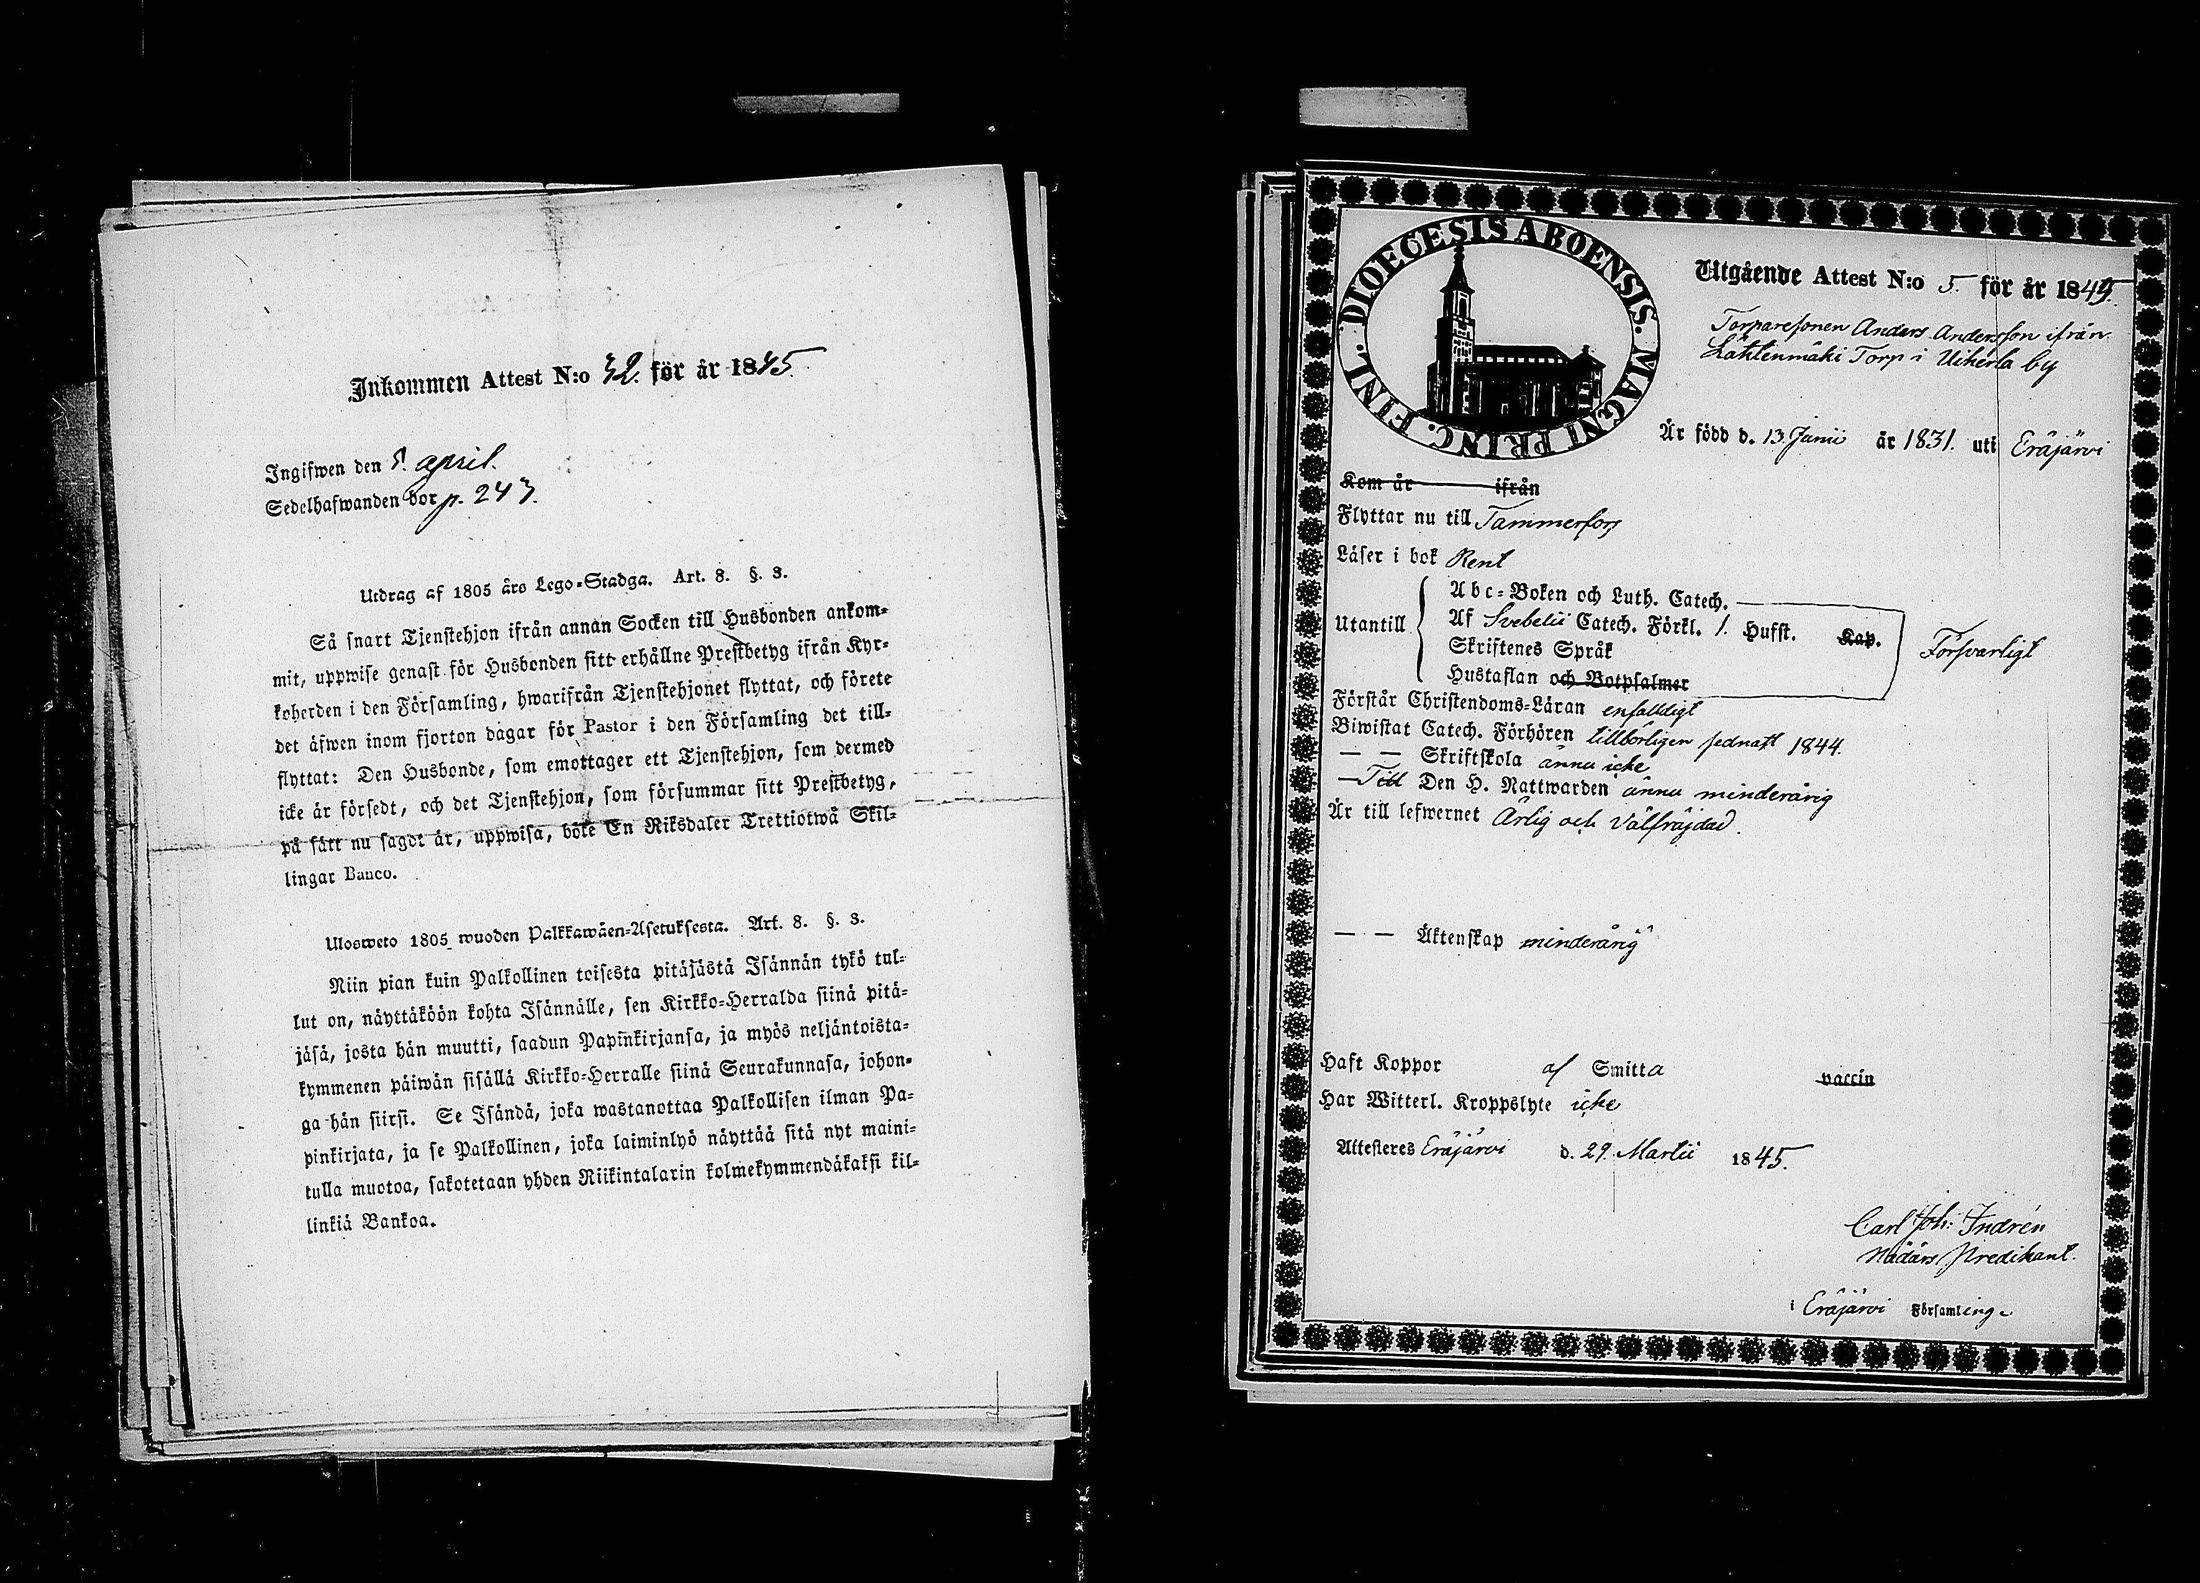 Inkommen Attest N:o 42. för år 1845.
Ingifwen den 8. april.
Sedelhafwanden bor p. 247.
Utdrag af 1805 års Lego-Stadga. Art. 8. §. 3.
Så snart Tjenstehjon ifrån annan Socken till Husbonden ankom-
mit, uppwise genast för Husbonden sitt erhållne Prestbetyg ifrån Kyr-
koherden i den Församling, hwarifrån Tjenstehjonet flyttat, och förete
det äfwen inom fjorton dagar för Pastor i den Församling det till-
flyttat: Den Husbonde, som emottager ett Tjenstehjon, som dermed
icke är försedt, och det Tjenstehjon, som försummar sitt Prestbetyg,
på sätt nu sagdt är, uppwisa, böte En Riksdaler Trettiotwå Skil-
lingar Banco.
Ulosweto 1805 wuoden Palkkawäen-Asetuksesta. Art. 8. §. 3.
Niin pian kuin Palkollinen toisesta pitäjästä Isännän tykö tul-
lut on, näyttäköön kohta Isännälle, sen Kirkko-Herralda siinä pitä-
jäsä, josta hän muutti, saadun Papinkirjansa, ja myös neljäntoista-
kymmenen päiwän sisällä Kirkko-Herralle siinä Seurakunnasa, johon-
ga hän siirsi. Se Isändä, joka wastanottaa Palkollisen ilman Pa-
pinkirjata, ja se Palkollinen, joka laiminlyö näyttää sitä nyt maini-
tulla muotoa, sakotetaan yhden Riikintalarin kolmekymmendäkaksi kil-
linkiä Bankoa.
DIOECESIS ABOENSIS. MAGNI PRINC. FINL.
Utgående Attest N:o 5. för år 1845.
Torparesonen Anders Andersson ifrån
Lähtenmäki Torp i Uiherla by
Är född d. 13 Junii år 1831. uti Eräjärvi
Kom år ifrån
Flyttar nu till Tammerfors
Läser i bok Rent
Abc-Boken och Luth. Catech.
Utantill Af Svebelii Catech. Förkl. 1. Hufst. Kap. Försvarligt
Skriftenes Språk
Hustaflan och Botpsalmer
Förstår Christendoms-Läran enfalldigt
Biwistat Catech. Förhören tillbörligen sednast 1844.
— — Skriftskola ännu icke
— Till Den H. Nattwarden ännu minderårig
Är till lefwernet Ärlig och Välfräjdad.
— — Äktenskap minderårig
Haft Koppor af Smitta vaccin
Har Witterl. Kroppslyte icke
Attesteres Eräjärvi d. 29 Martii 1845.
Carl Joh: Indrén
Nådårs Predikant.
i Eräjärvi Församling